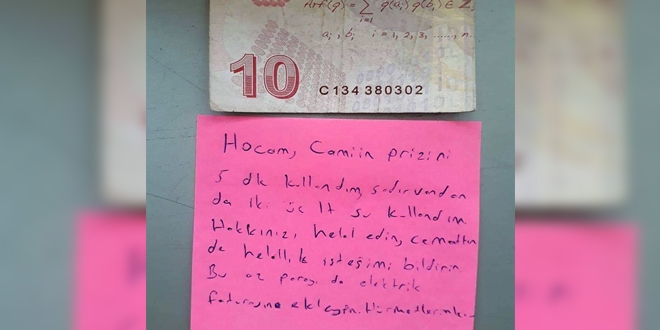 Arf(q) = ∑ q(aᵢ) q(bᵢ) ∈ Z₂
i=1
aᵢ, bᵢ i = 1, 2, 3, ....., n
10
C134 380302
Hocam, Camiin prizini
5 dk kullandım, şadırvandan
da iki üç lt su kullandım
Hakkınızı helal edin, cemaatten
de helallik isteğimi bildirin
Bu az parayı da elektrik
faturasına ekleyin. Hürmetlerimle